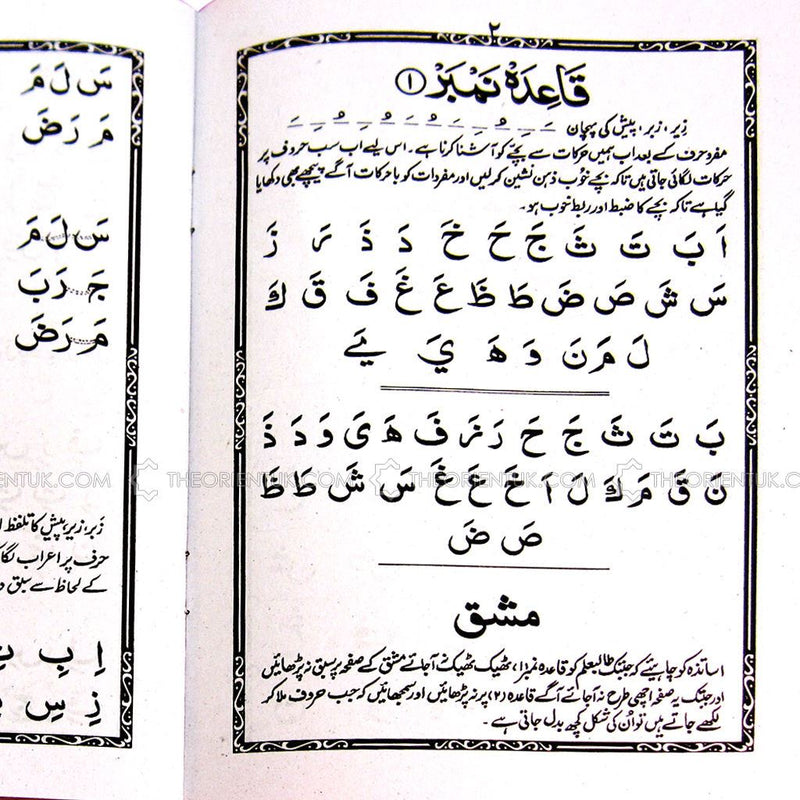 ۲
قَاعِدَہْ نَمْبَرْ ۱
زیر، زبر، پیش کی پہچان
مفرد حرف کے بعد اب ہمیں حرکات سے بچّے کو آشنا کرنا ہے۔ اس لیے اب سب حروف پر
حرکات لگائی جاتی ہیں تاکہ بچے خوب ذہن نشین کرلیں اور مفردات کو با حرکات آگے پیچھے بھی دکھایا
گیا ہے تاکہ بچے کا ضبط اور ربط خوب ہو۔
اَ بَ تَ ثَ جَ حَ خَ دَ ذَ رَ زَ
سَ شَ صَ ضَ طَ ظَ عَ غَ فَ قَ كَ
لَ مَ نَ وَ هَ يَ ےَ
بَ تَ ثَ جَ حَ رَ زَ فَ هَ یَ وَ دَ ذَ
نَ قَ مَ كَ لَ اَ خَ عَ غَ سَ شَ طَ ظَ
صَ ضَ
مشق
اساتذہ کو چاہیئے کہ جبتک طالبعلم کو قاعدہ نمبر ۱، ٹھیک ٹھیک نہ آجائے مشق کے صفحہ پر سبق نہ پڑھائیں
اور جبتک یہ صفحہ اچھی طرح نہ آجائے آگے قاعدہ (۲) پر نہ پڑھائیں اور سمجھائیں کہ جب حروف ملا کر
لکھے جاتے ہیں تو اُن کی شکل کچھ بدل جاتی ہے۔
سَ لَ مَ
مَ رَضَ
سَ لَ مَ
جَ رَبَ
مَ رَضَ
زَبر، زیر، پیش کا تلفظ
حرف پر اعراب
کے لحاظ سے سبق
اِ بِ تِ
زِ سِ
THEORIENTUK.COM THEORIENTUK.COM THEORIENTUK.COM